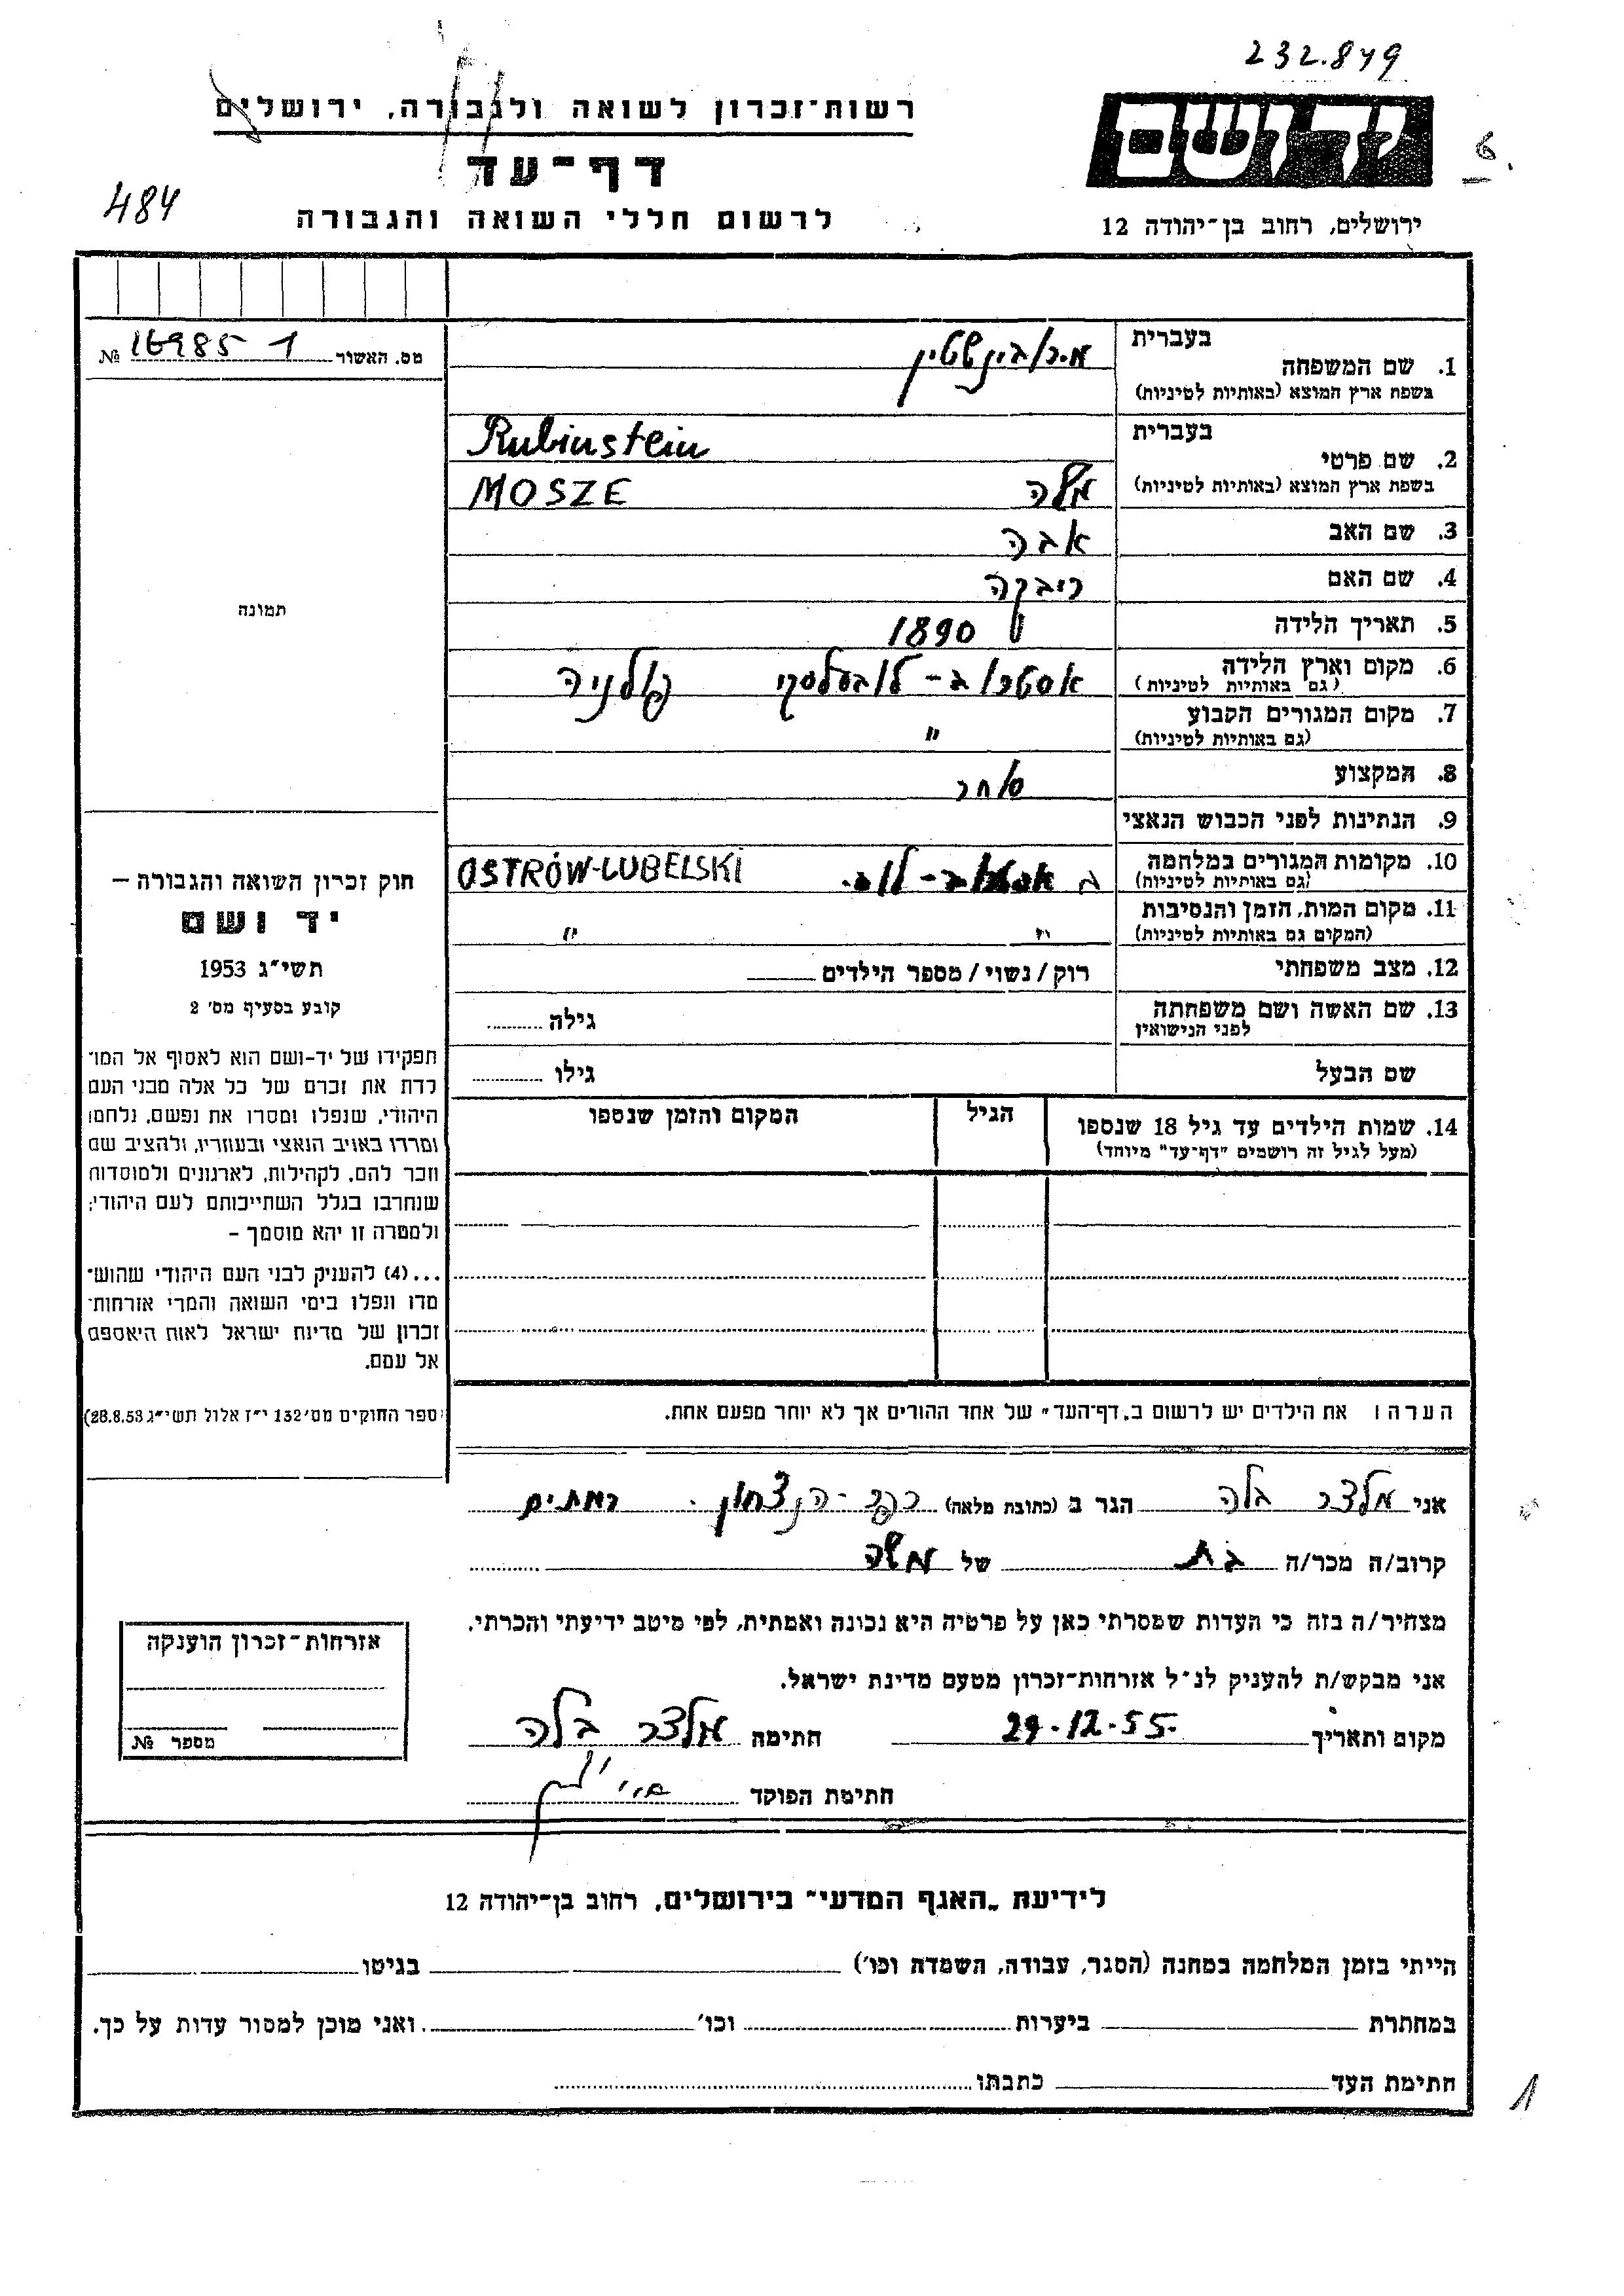 232.849
רשות־זכרון לשואה ולגבורה, ירושלים
יד ושם
6.
דף־עד
484
לרשום חללי השואה והגבורה
ירושלים, רחוב בן־יהודה 12
מס. האשור 1 16985 №
בעברית
1. שם המשפחה רובינשטיין
בשפת ארץ המוצא (באותיות לטיניות)
Rubinstein
בעברית
2. שם פרטי
בשפת ארץ המוצא (באותיות לטיניות) משה MOSZE
3. שם האב אבה
4. שם האם ריבקה
5. תאריך הלידה 1890
6. מקום וארץ הלידה אוסטרוב - לובעלסקי פולניה
(גם באותיות לטיניות)
7. מקום המגורים הקבוע
(גם באותיות לטיניות) "
8. המקצוע סוחר
9. הנתינות לפני הכבוש הנאצי
10. מקומות המגורים במלחמה OSTRÓW-LUBELSKI
(גם באותיות לטיניות)
11. מקום המות, הזמן והנסיבות
(המקום גם באותיות לטיניות) " "
12. מצב משפחתי רוק/נשוי/מספר הילדים
13. שם האשה ושם משפחתה גילה
לפני הנישואין
שם הבעל גילו
14. שמות הילדים עד גיל 18 שנספו הגיל המקום והזמן שנספו
(מעל לגיל זה רושמים "דף־עד" מיוחד)
תמונה
חוק זכרון השואה והגבורה –
יד ושם
תשי״ג 1953
קובע בסעיף מס׳ 2
תפקידו של יד-ושם הוא לאסוף אל המו־
לדת את זכרם של כל אלה מבני העם
היהודי, שנפלו ומסרו את נפשם, נלחמו
ומרדו באויב הנאצי ובעוזריו, ולהציב שם
וזכר להם, לקהילות, לארגונים ולמוסדות
שנחרבו בגלל השתייכותם לעם היהודי;
ולמטרה זו יהא מוסמך –
...(4) להעניק לבני העם היהודי שהוש־
מדו ונפלו בימי השואה והמרי אזרחות־
זכרון של מדינת ישראל לאות היאספם
אל עמם.
(ספר החוקים מס׳ 132 י״ז אלול תשי״ג 28.8.53)
הערה: את הילדים יש לרשום ב„דף־העד" של אחד ההורים אך לא יותר מפעם אחת.
אני מלצר בלה הגר ב (כתובת מלאה) כפר - הנצחון. רמתים
קרוב/ה מכר/ה בת של משה
מצהיר/ה בזה כי העדות שמסרתי כאן על פרטיה היא נכונה ואמתית, לפי מיטב ידיעתי והכרתי.
אני מבקש/ת להעניק לנ״ל אזרחות־זכרון מטעם מדינת ישראל.
מקום ותאריך 29.12.55 חתימה מלצר בלה
חתימת הפוקד
אזרחות־זכרון הוענקה
מספר №
לידיעת „האגף המדעי" בירושלים, רחוב בן־יהודה 12
הייתי בזמן המלחמה במחנה (הסגר, עבודה, השמדה וכו׳) בגיטו
במחתרת ביערות וכו׳ ואני מוכן למסור עדות על כך.
חתימת העד כתבתו
1